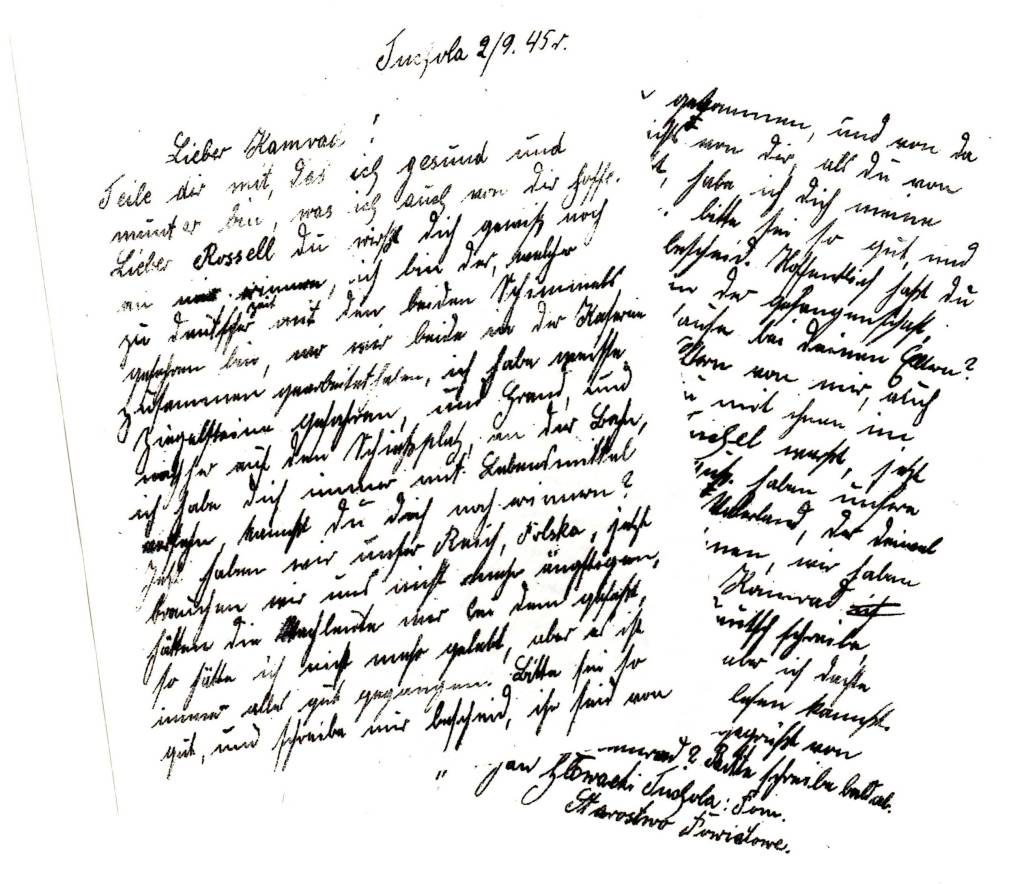 Tuchola 2/9. 45 r.
Lieber Kamrad!
Teile dir mit, das ich gesund und
munter bin, was ich auch von dir hoffe.
Lieber Rossell du wirst dich gewiß noch
an erinnern, ich bin der, welcher
zu deutscher zeit mit den beiden Schimmels
gefahren bin, wo wir beide in der Kaserne
zusammen gearbeitet haben, ich habe
Ziegelsteine gefahren, und Grand, und
nachher auf den Schießplatz, an der Bahn,
ich habe dich immer mit Lebensmittel
versehn, kannst du dich noch erinnern?
Jetzt haben wir unser Reich, Polska, jetzt
brauchen wir uns nicht mehr ängstigen,
hätten die Wachleute mer bei dem gefaßt,
so hätte ich nicht mehr gelebt, aber es ist
immer alles gut gegangen. Bitte sei so
gut, und schreibe mir bescheid, ihr seid von
gekommen, und von da
von dir, als du von
habe ich dich meine
bitte sei so gut, und
bescheid. Hoffentlich hast du
der gefangenschaft,
bei deinen Eltern?
von mir, auch
mit ihnen im
weist, jetzt
haben unsere
Vaterland, der
wir haben
Kamrad
schreibe,
aber ich dachte
lesen kannst.
gegrüßt von
Bitte schreibe bald ab.
Jan Głowacki Tuchola: Pom.
Starostwo Powiatowe.